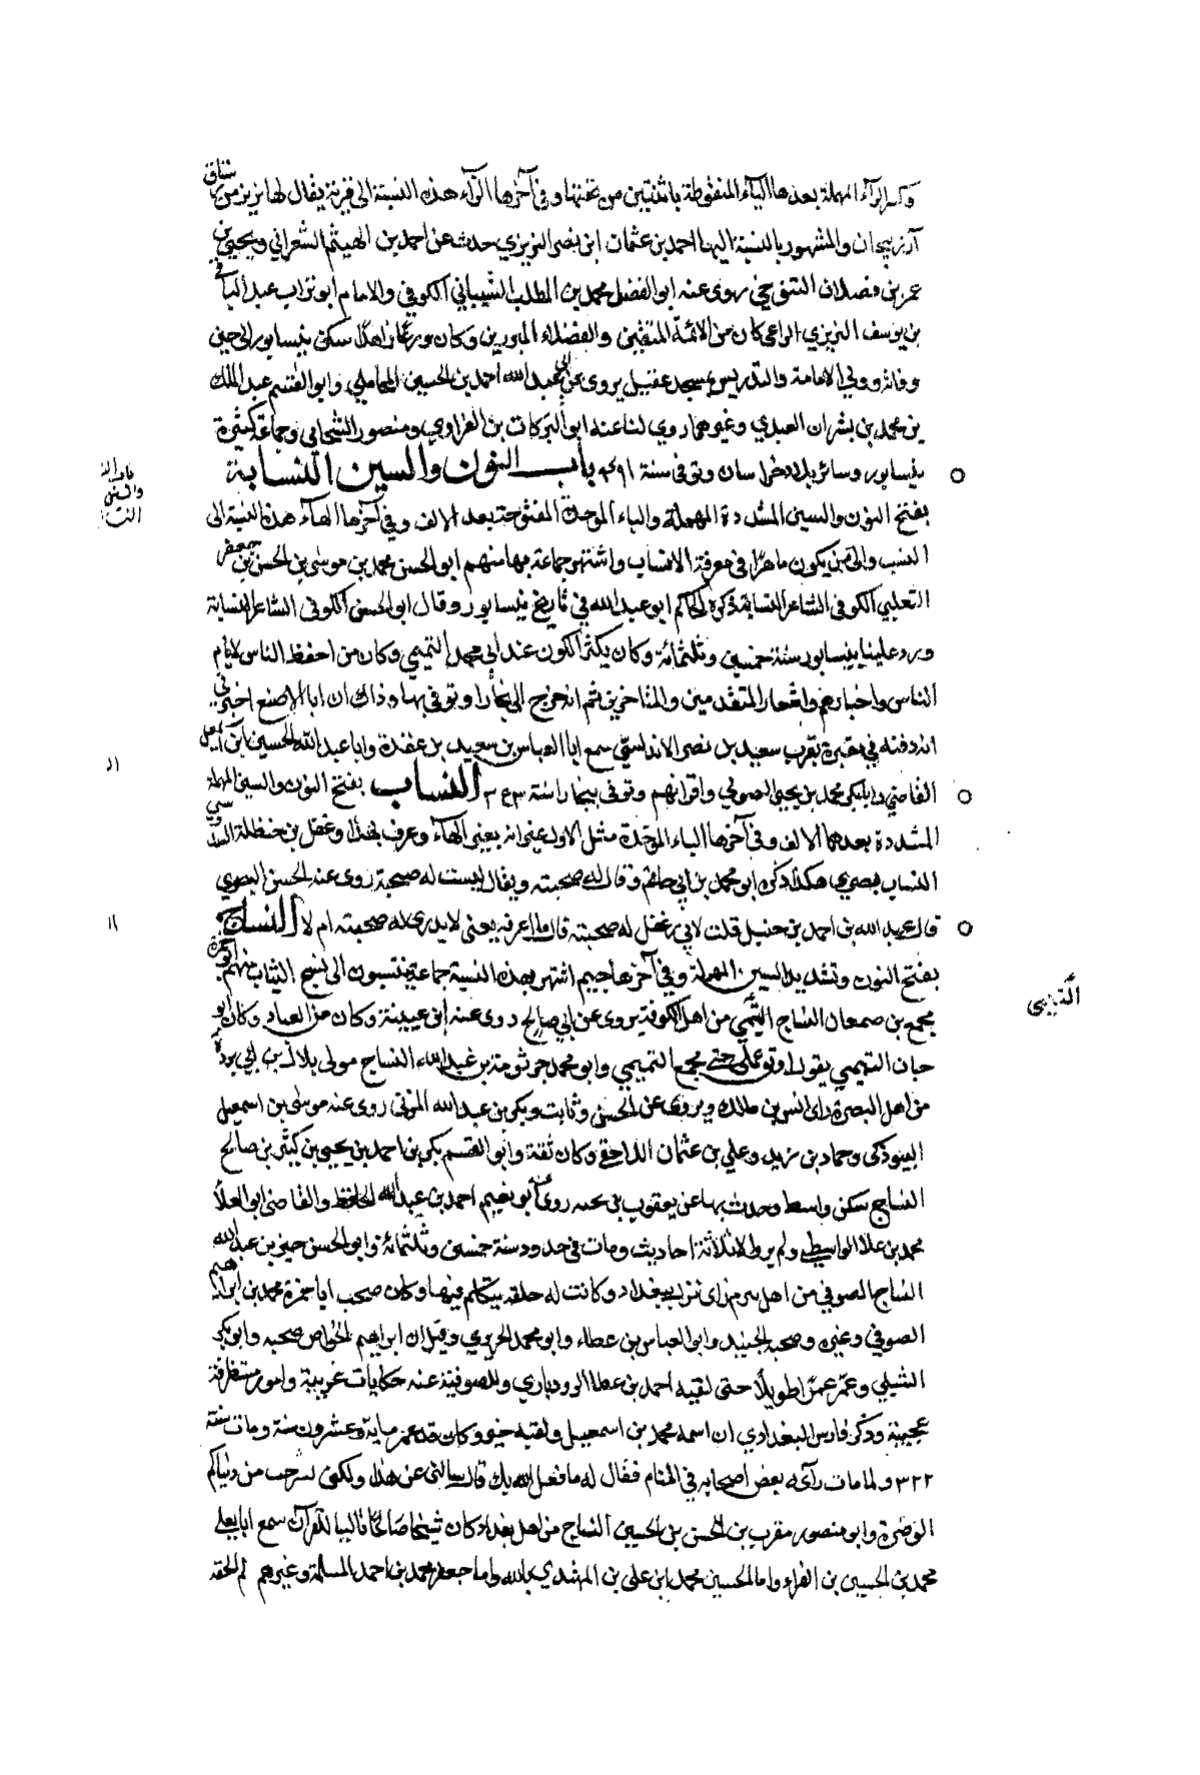 وكسر الرآء المهملة بعدها اليآء المنقوطة باثنتين من تحتها وفي آخرها الزآء هذه النسبة الى قرية يقال لها نريز من
آذربيجان والمشهور بالنسبة اليها احمد بن عثمان ابن نصر النريزي حدث عن احمد بن الهيثم الشعراني ويحيى بن
عمر بن فضلان التنوخي روى عنه ابو الفضل محمد بن المطلب الشيباني الكوفي والامام ابو تراب عبد الباقي
بن يوسف النريزي المراغي كان من الائمة المتقنين والفضلاء المبرزين وكان ورعا زاهدا سكن نيسابور الى حين
وفاته وولي الامامة والتدريس بمسجد عقيل يروى عن ابي عبد الله احمد بن الحسين المحاملي وابو القسم عبد الملك
بن محمد بن بشران العبدي وغيرهما روي لنا عنه ابو البركات بن الفراوي ومنصور الشحامي وجماعة كثيرة
بنيسابور وسائر بلاد خراسان وتوفى سنة ٤٩١ باب النون والسين النسابة
بفتح النون والسين المشددة المهملة والباء الموحدة المفتوحة بعد الالف وفي آخرها الهآء هذه النسبة الى
النسب والى من يكون ماهرا في معرفة الانساب واشتهر جماعة بها منهم ابو الحسن محمد بن موسى بن الحسن بن جعفر
الثعلبي الكوفى الشاعر النسابة ذكره الحاكم ابو عبد الله في تاريخ نيسابور وقال ابو الحسن الكوفى الشاعر النسابة
ورد علينا بنيسابور سنة خمسين وثلثمائة وكان يكثر الكون عند ابي محمد التميمي وكان من احفظ الناس لايام
الناس واخبارهم واشعار المتقدمين والمتاخرين ثم انه خرج الى بخارا وتوفى بها وذاك ان ابا الاصبع اخبرني
انه دفنه في مقبرة بقرب سعيد بن نصر الاندلسي سمع ابا العباس بن سعيد بن عقدة وابا عبد الله الحسين ابن اسمعيل
القاضي وابا بكر محمد بن يحيى الصولي واقرانهم وتوفى ببخارا سنة ٣٤٣ النساب بفتح النون والسين المهملة
المشددة بعدهما الالف وفي آخرها الباء الموحدة مثل الاول غير انه بغير الهآء وعرف بهذا دغفل بن حنظلة السدوسي
النساب بصري هكذا ذكره ابو محمد بن ابي حاتم وقال له صحبة ويقال ليست له صحبة روى عنه الحسن البصري
قال عبد الله بن احمد بن حنبل قلت لابي دغفل له صحبة قال ما اعرفه يعنى لا يدرى له صحبته ام لا النساج
بفتح النون وتشديد السين المهملة وفي آخرها جيم اشتهر بهذه النسبة جماعة ينتسبون الى نسج الثياب منهم ابو حمزة
مجمع بن صمعان النساج التيمي من اهل الكوفة يروى عن ابي صالح روى عنه ابن عيينة وكان من العباد وكان ابو
حيان التيمي يقول اوثق عملي حتي مجمع التميمي وابو محمد جرثومة بن عبد الله النساج مولى بلال بن ابي بردة
من اهل البصرة راى انس بن مالك ويروى عن الحسن وثابت وبكر بن عبد الله المزنى روى عنه موسى بن اسمعيل
التبوذكى وحماد بن زيد وعلي بن عثمان اللاحقي وكان ثقة وابو القسم بكر بن احمد بن يحيى بن كثير بن صالح
النساج سكن واسط وحدث بها عن يعقوب بن روى عنه ابو نعيم احمد بن عبد الله الحافظ والقاضى ابو العلا
محمد بن علا الواسطي ولم يرو الا ثلاثة احاديث ومات في حدود سنة خمسين وثلثمائة وابو الحسن خير بن عبد الله
النساج الصوفي من اهل سر من راى نزل بغداد وكانت له حلقه يتكلم فيها وكان صحب ابا حمزة محمد بن ابراهيم
الصوفي وغيره وصحبه الجنيد وابو العباس بن عطاء وابو محمد الجريري وقيل ان ابراهيم الخواص صحبه وابو بكر
الشبلي وعمر عمرا طويلا حتى لقيه احمد بن عطا الروذباري وللصوفية عنه حكايات غريبة وامور مستظرفة
عجيبة وذكر فارس البغدادي ان اسمه محمد بن اسمعيل ولقبه خير وكان قد عمر ماية وعشرون سنة ومات سنة
٣٢٢ ولما مات رآى له بعض اصحابه في المنام فقال له ما فعل الله بك قال لا تسالني عن هذا ولكن استرحت من دنياكم
الوضرة وابو منصور مقرب بن الحسن بن الحسين النساج من اهل بغداد كان شيخا صالحا تاليا للقرآن سمع ابا يعلى
محمد بن الحسين بن الفراء وابا الحسين محمد بن علي بن المهتدي بالله وابا جعفر محمد بن احمد المسلمة وغيرهم لم الحقه